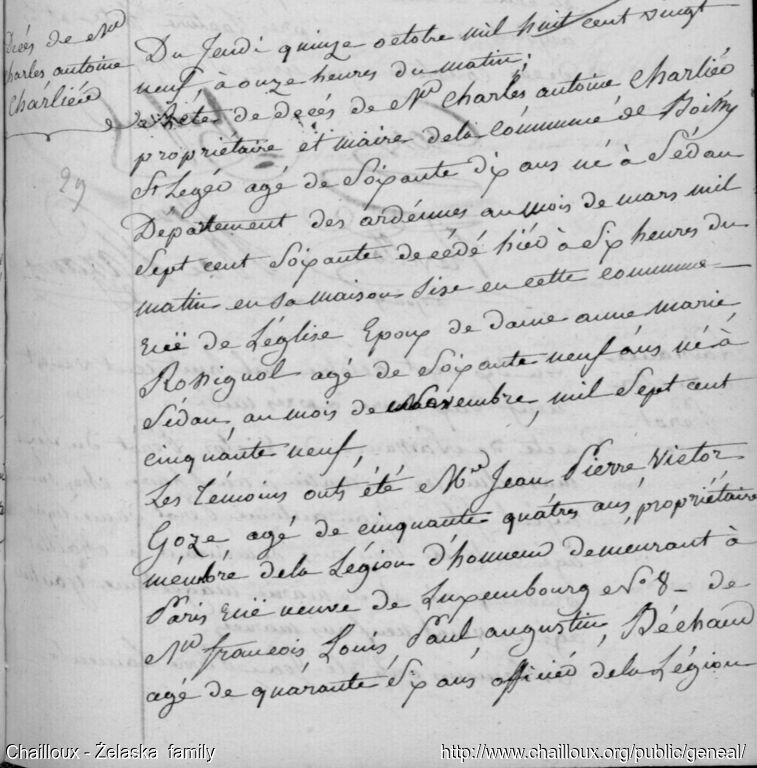 Décés de Mr
Charles antoine
Charlier
29
Du Jeudi quinze octobre mil huit cent vingt
neuf à onze heures du matin;
acte de decés de Mr Charles antoine Charlier
propriétaire et maire dela Commune de Boissy
St Leger agé de Soixante dix ans né à Sédan
Département des ardennes au mois de mars mil
Sept cent Soixante décédé hier à Six heures du
matin en Sa maison Sise en cette commune
rue de L'église Epoux de dame anne marie
Rossignol agé de Soixante neuf ans né à
Sédan au mois de Novembre, mil Sept cent
cinquante neuf,
Les Témoins onts été Mr Jean Pierre Victor
Goze agé de cinquante quatres ans, propriétaire
membre dela Légion d'honneur demeurant à
Paris rue neuve de Luxembourg No 8 - de
Mr francois Louis, Paul, augustin, Béchaud
agé de quarante Six ans officier dela Légion
Chailloux - Żelaska family
http://www.chailloux.org/public/geneal/